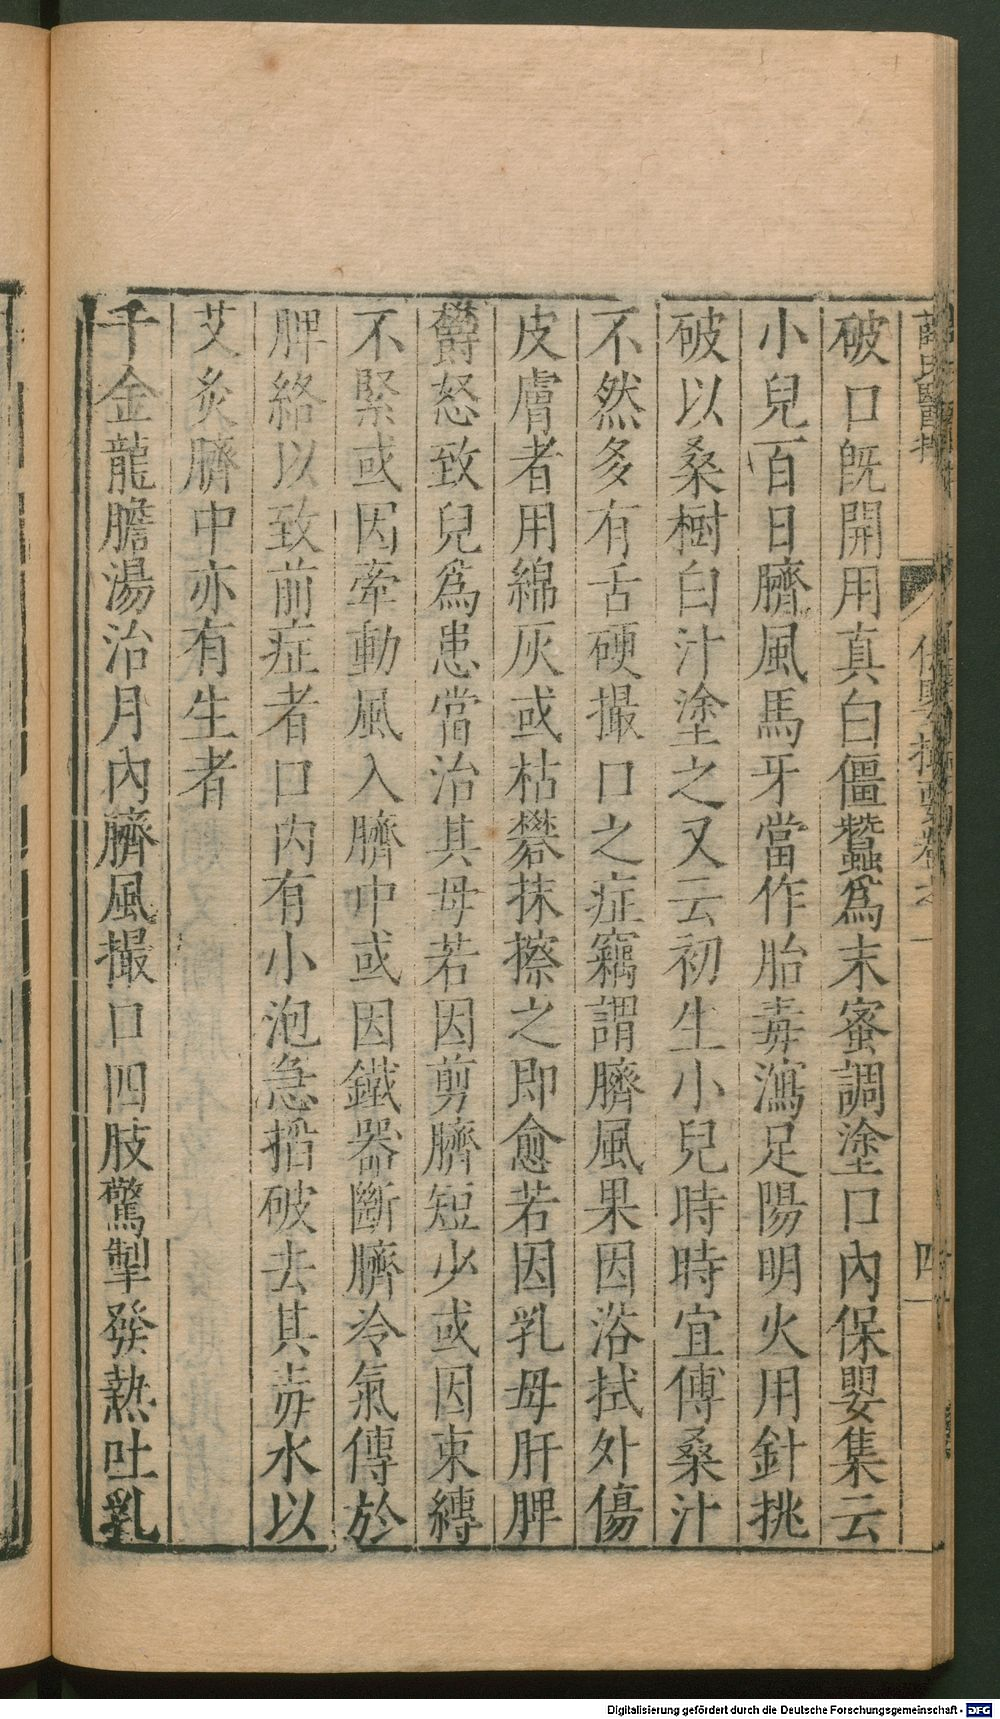 薛氏醫按 保嬰撮要卷之一 四
破口既開用真白僵蠶爲末蜜調塗口內保嬰集云
小兒百日臍風馬牙當作胎毒瀉足陽明火用針挑
破以桑樹白汁塗之又云初生小兒時時宜傅桑汁
不然多有舌硬撮口之症竊謂臍風果因浴拭外傷
皮膚者用綿灰或枯礬抹擦之即愈若因乳母肝脾
鬱怒致兒爲患當治其母若因剪臍短少或因束縛
不緊或因牽動風入臍中或因鐵器斷臍冷氣傳於
脾絡以致前症者口內有小泡急掐破去其毒水以
艾炙臍中亦有生者
千金龍膽湯治月內臍風撮口四肢驚掣發熱吐乳
Digitalisierung gefördert durch die Deutsche Forschungsgemeinschaft - DFG